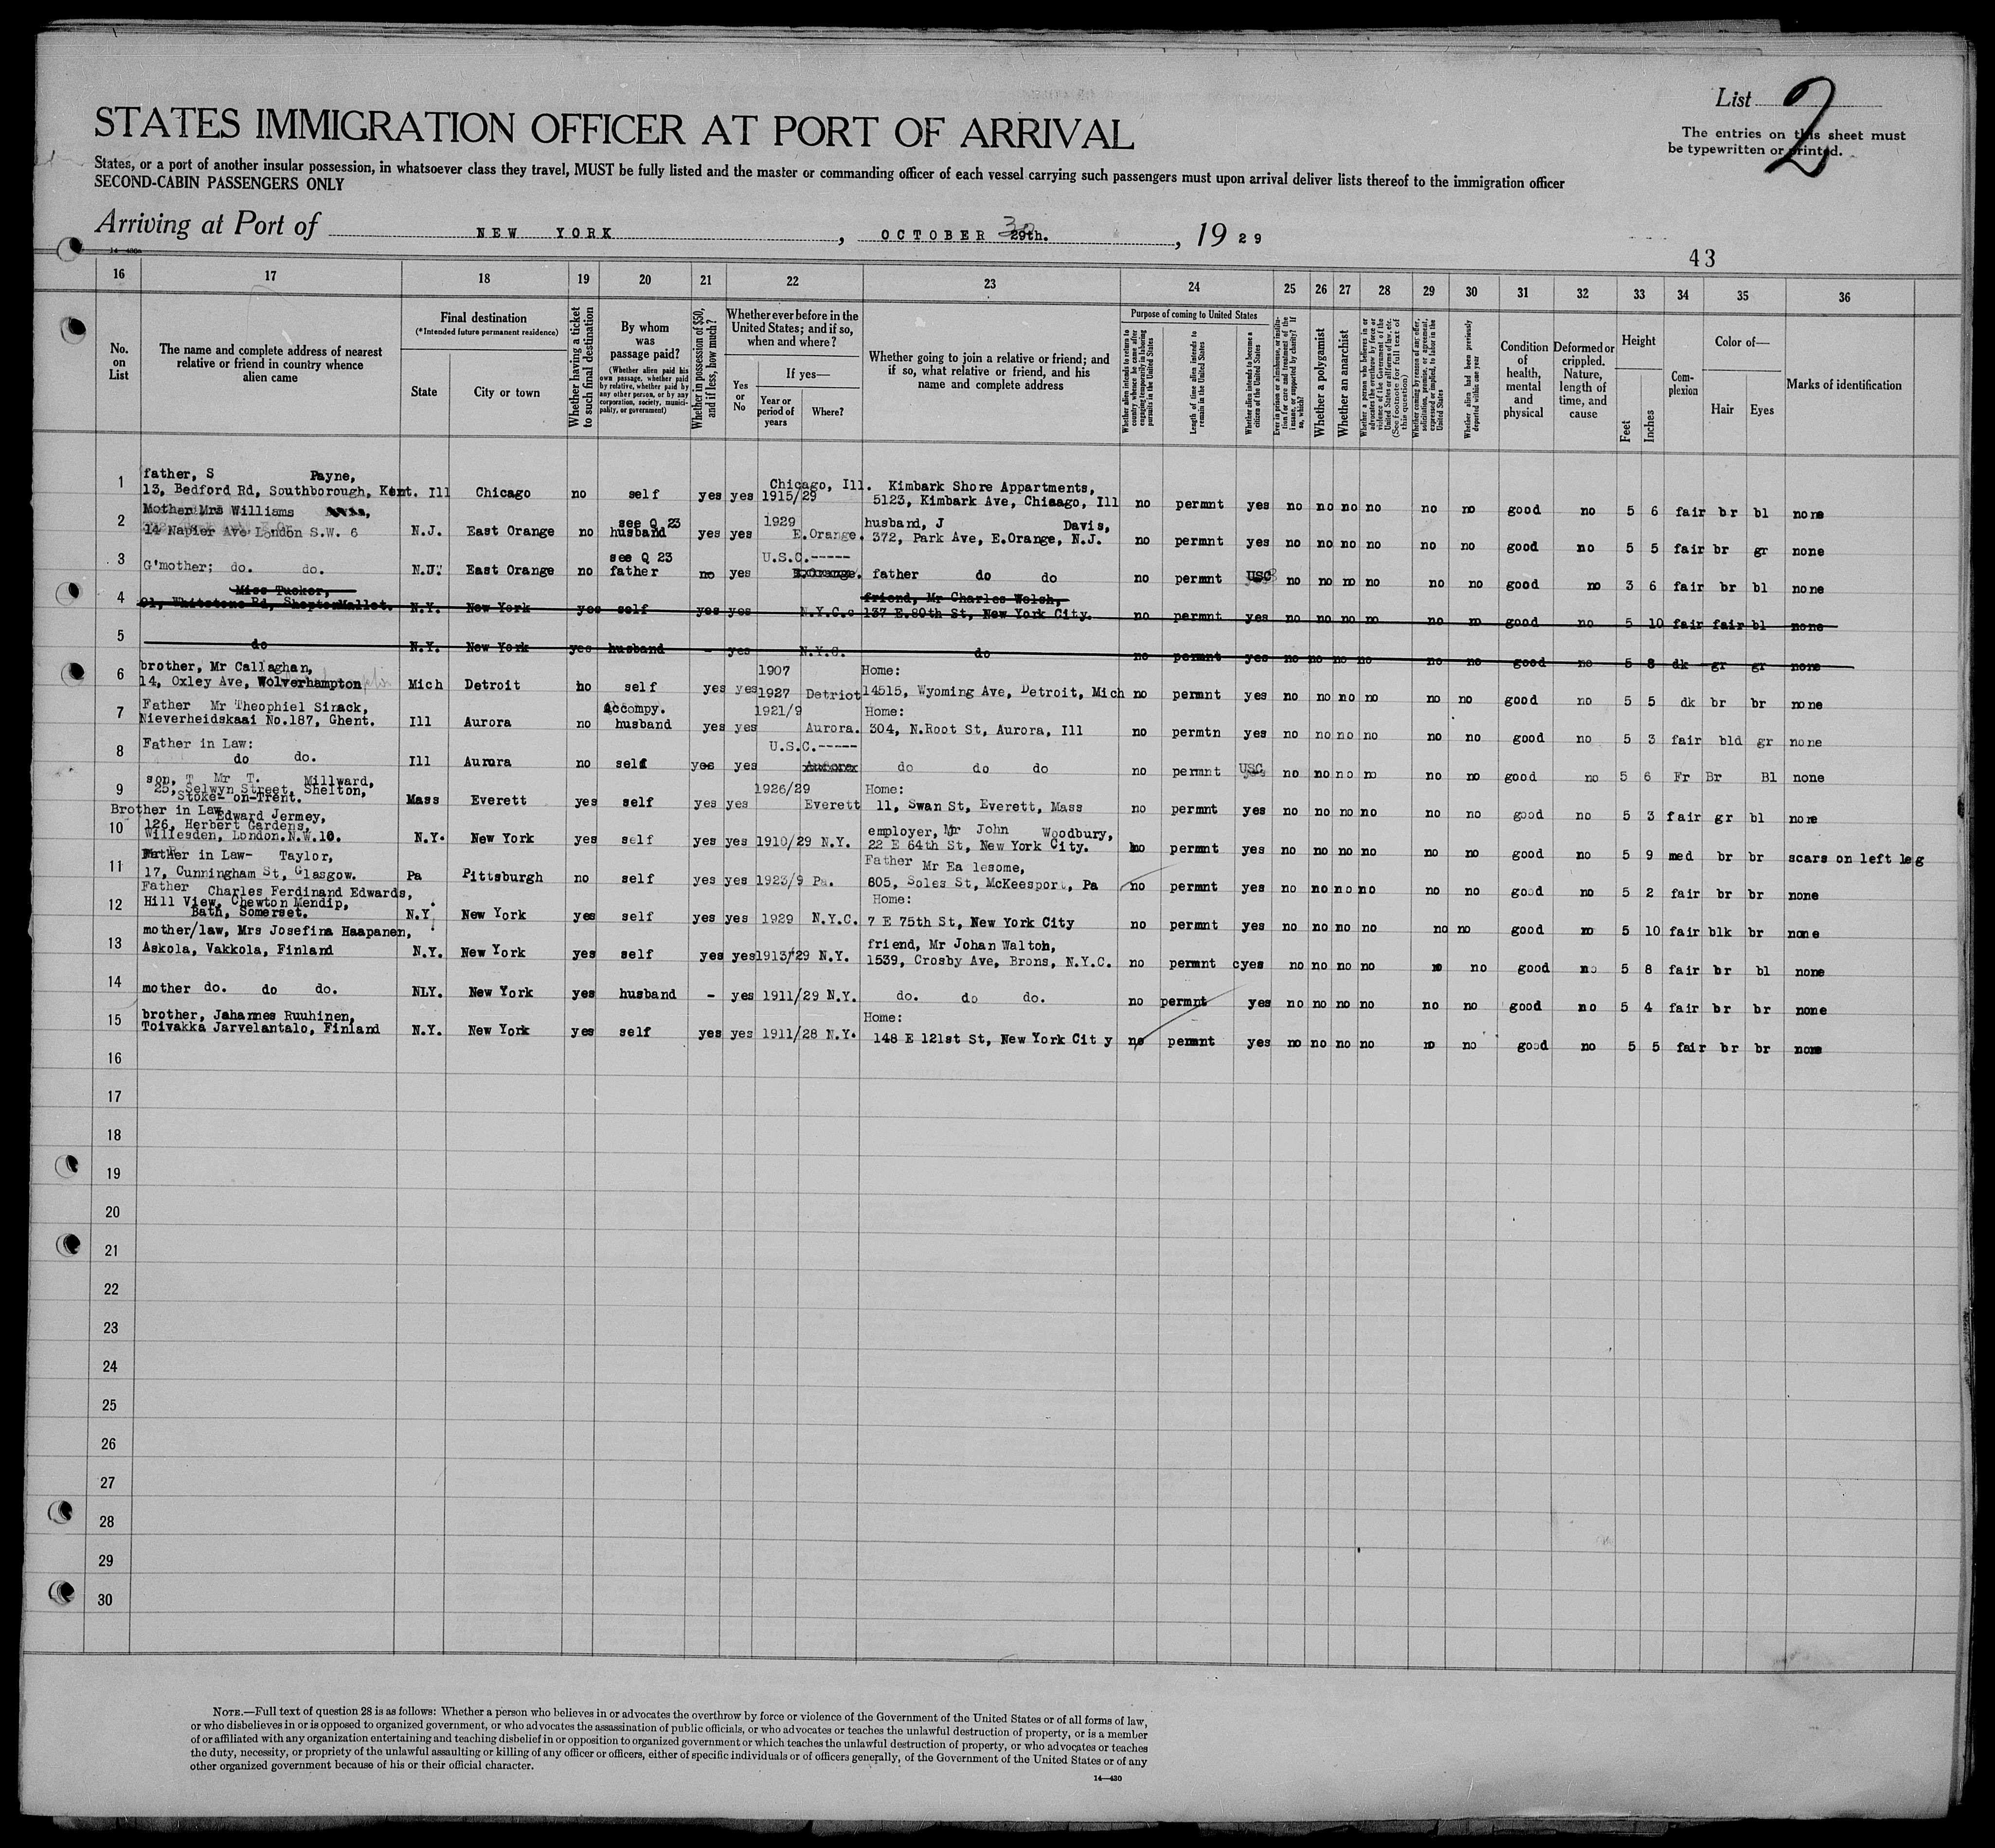 List 2
STATES IMMIGRATION OFFICER AT PORT OF ARRIVAL
The entries on this sheet must
be typewritten or printed.
States, or a port of another insular possession, in whatsoever class they travel, MUST be fully listed and the master or commanding officer of each vessel carrying such passengers must upon arrival deliver lists thereof to the immigration officer
SECOND-CABIN PASSENGERS ONLY
Arriving at Port of NEW YORK, OCTOBER 30 29th., 1929
14—430a
43
16 17 18 19 20 21 22 23 24 25 26 27 28 29 30 31 32 33 34 35 36
No. on List
The name and complete address of nearest relative or friend in country whence alien came
Final destination
(*Intended future permanent residence)
State
City or town
Whether having a ticket to such final destination
By whom was passage paid?
(Whether alien paid his own passage, whether paid by relative, whether paid by any other person, or by any corporation, society, municipality, or government)
Whether in possession of $50, and if less, how much?
Whether ever before in the United States; and if so, when and where?
Yes or No
If yes—
Year or period of years
Where?
Whether going to join a relative or friend; and if so, what relative or friend, and his name and complete address
Purpose of coming to United States
Whether alien intends to return to country whence he came after engaging temporarily in laboring pursuits in the United States
Length of time alien intends to remain in the United States
Whether alien intends to become a citizen of the United States
Ever in prison or almshouse, or institution for care and treatment of the insane, or supported by charity? If so, which?
Whether a polygamist
Whether an anarchist
Whether a person who believes in or advocates the overthrow by force or violence of the Government of the United States or all forms of law, etc. (See footnote for full text of this question)
Whether coming by reason of any offer, solicitation, promise, or agreement, expressed or implied, to labor in the United States
Whether alien had been previously deported within one year
Condition of health, mental and physical
Deformed or crippled. Nature, length of time, and cause
Height
Feet
Inches
Complexion
Color of—
Hair
Eyes
Marks of identification
1 father, S Payne,
13, Bedford Rd, Southborough, Kent. Ill Chicago no self yes yes 1915/29 Chicago, Ill. Kimbark Shore Appartments,
5123, Kimbark Ave, Chiaago, Ill no permnt yes no no no no no no good no 5 6 fair br bl none
2 Mother Mrs Williams
14 Napier Ave London S.W. 6 N.J. East Orange no see Q 23 husband yes yes 1929 E.Orange. husband, J Davis,
372, Park Ave, E.Orange, N.J. no permnt yes no no no no no no good no 5 5 fair br gr none
3 G'mother; do. do. N.J. East Orange no see Q 23 father no yes U.S.C.----- E.Orange. father do do no permnt USC no no no no no no good no 3 6 fair br bl none
4 Miss Tucker,
91, Whitstone Rd, SheptonMallet. N.Y. New York yes self yes yes N.Y.C. friend, Mr Charles Welsh,
137 E.80th St, New York City. no permnt yes no no no no no no good no 5 10 fair fair bl none
5 do N.Y. New York yes husband - yes N.Y.C. do no permnt yes no no no no no no good no 5 8 dk gr gr none
6 brother, Mr Callaghan,
14, Oxley Ave, Wolverhampton Mich Detroit no self yes yes 1907 1927 Detriot Home:
14515, Wyoming Ave, Detroit, Mich no permnt yes no no no no no no good no 5 5 dk br br none
7 Father Mr Theophiel Sirack,
Nieverheidskaai No.187, Ghent. Ill Aurora no Accompy. husband yes yes 1921/9 Aurora. Home:
304, N.Root St, Aurora, Ill no permtn yes no no no no no no good no 5 3 fair bld gr none
8 Father in Law:
do do. Ill Aurora no self yes yes U.S.C.----- Aurora do do do no permnt USC no no no no no no good no 5 6 Fr Br Bl none
9 son, T Mr T. Millward,
25, Selwyn Street, Shelton,
Stoke- on-Trent. Mass Everett yes self yes yes 1926/29 Everett Home:
11, Swan St, Everett, Mass no permnt yes no no no no no no good no 5 3 fair gr bl none
10 Brother in Law Edward Jermey,
126, Herbert Gardens,
Willesden, London.N.W.10. N.Y. New York yes self yes yes 1910/29 N.Y. employer, Mr John Woodbury,
22 E 64th St, New York City. no permnt yes no no no no no no good no 5 9 med br br scars on left leg
11 Father in Law- Taylor,
17, Cunningham St, Glasgow. Pa Pittsburgh no self yes yes 1923/9 Pa. Father Mr Ea lesome,
805, Soles St, McKeesport, Pa no permnt yes no no no no no no good no 5 2 fair br br none
12 Father Charles Ferdinand Edwards,
Hill View, Chewton Mendip,
Bath, Somerset. N.Y. New York yes self yes yes 1929 N.Y.C. Home:
7 E 75th St, New York City no permnt yes no no no no no no good no 5 10 fair blk br none
13 mother/law, Mrs Josefina Haapanen,
Askola, Vakkola, Finland N.Y. New York yes self yes yes 1913/29 N.Y. friend, Mr Johan Walton,
1539, Crosby Ave, Brons, N.Y.C. no permnt cyes no no no no no no good no 5 8 fair br bl none
14 mother do. do do. NLY. New York yes husband - yes 1911/29 N.Y. do. do do. no permnt yes no no no no no no good no 5 4 fair br br none
15 brother, Jahannes Ruuhinen,
Toivakka Jarvelantalo, Finland N.Y. New York yes self yes yes 1911/28 N.Y. Home:
148 E 121st St, New York Cit y no permnt yes no no no no no no good no 5 5 fair br br none
16
17
18
19
20
21
22
23
24
25
26
27
28
29
30
NOTE.—Full text of question 28 is as follows: Whether a person who believes in or advocates the overthrow by force or violence of the Government of the United States or of all forms of law,
or who disbelieves in or is opposed to organized government, or who advocates the assassination of public officials, or who advocates or teaches the unlawful destruction of property, or is a member
of or affiliated with any organization entertaining and teaching disbelief in or opposition to organized government or which teaches the unlawful destruction of property, or who advocates or teaches
the duty, necessity, or propriety of the unlawful assaulting or killing of any officer or officers, either of specific individuals or of officers generally, of the Government of the United States or of any
other organized government because of his or their official character.
14—430